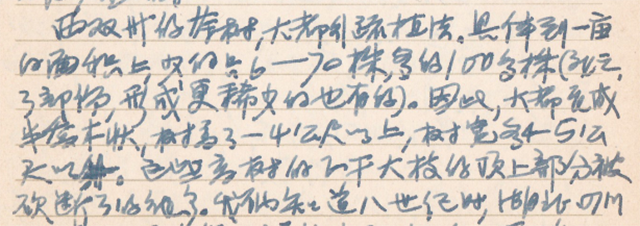 西双州的茶树,大都引疏植法。具体到一亩
的面积上,少的只6—70株,多的100多株(
了部份,形成更稀少的也有的)。因此,大都克成
半乔木状,树高3—4公尺以上,树宽多4—5公
尺以。这些高树的不干大枝的顶上部分被
砍断了的很多。我们知道八世纪时,湖北四川